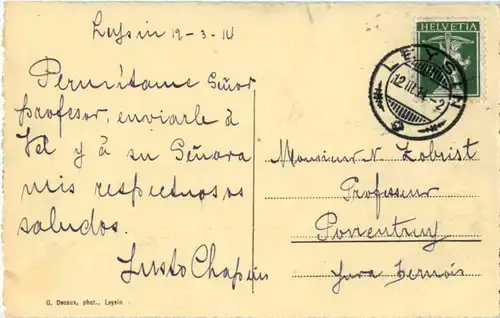 Leysin 12-3-14
Permítame Señor
profesor, enviarle á
Vd y á su Señora
mis respectuosos
saludos.
Justo
HELVETIA
LEYSIN
12.III.14.-2
Monsieur N. Zobrist
Professeur
Porrentruy
Jura bernois
G. Decaux, phot., Leysin